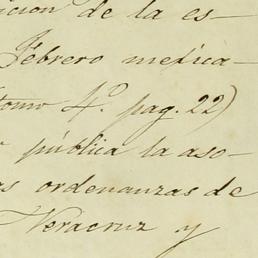 icion de la es-
Febrero mejica-
tomo 4º pag. 22)
pública la aso-
as ordenanzas de
Veracruz y